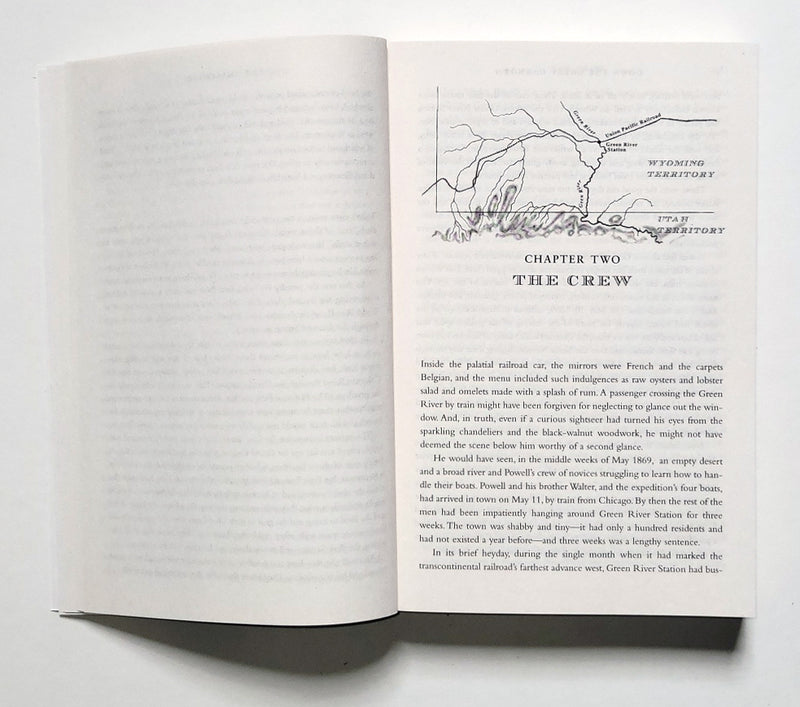 Green River
Union Pacific Railroad
Green River
Station
WYOMING
TERRITORY
Green River
UTAH
TERRITORY
CHAPTER TWO
THE CREW
Inside the palatial railroad car, the mirrors were French and the carpets
Belgian, and the menu included such indulgences as raw oysters and lobster
salad and omelets made with a splash of rum. A passenger crossing the Green
River by train might have been forgiven for neglecting to glance out the win-
dow. And, in truth, even if a curious sightseer had turned his eyes from the
sparkling chandeliers and the black-walnut woodwork, he might not have
deemed the scene below him worthy of a second glance.
He would have seen, in the middle weeks of May 1869, an empty desert
and a broad river and Powell's crew of novices struggling to learn how to han-
dle their boats. Powell and his brother Walter, and the expedition's four boats,
had arrived in town on May 11, by train from Chicago. By then the rest of the
men had been impatiently hanging around Green River Station for three
weeks. The town was shabby and tiny—it had only a hundred residents and
had not existed a year before—and three weeks was a lengthy sentence.
In its brief heyday, during the single month when it had marked the
transcontinental railroad's farthest advance west, Green River Station had bus-